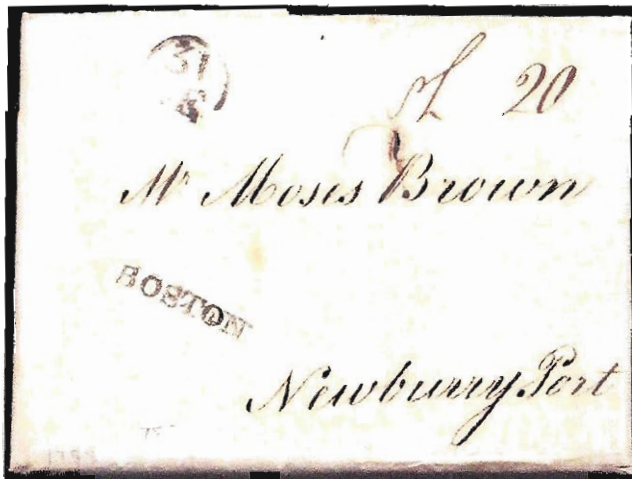 31
sh 20
Mr Moses Brown
BOSTON
Newburry Port